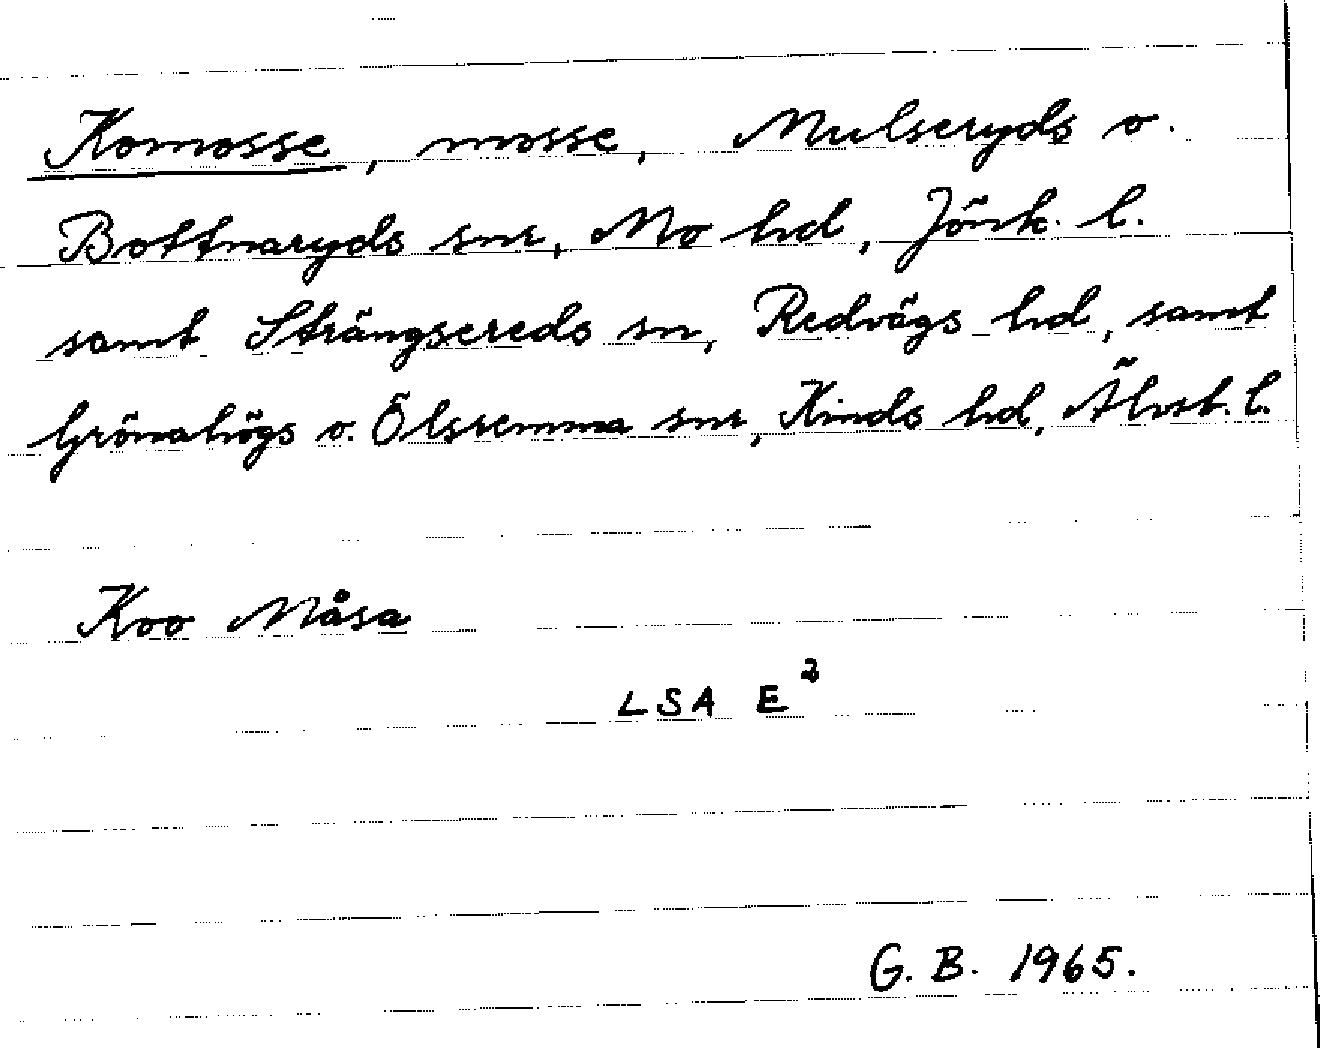 Komosse, mosse, Mulseryds o.
Bottnaryds snr, Mo hd, Jönk. l.
samt Strängsereds sn, Redvägs hd, samt
Grönahögs o. Ölsremma snr, Kinds hd, Älvsb. l.
Koo Måsa
LSA E²
G. B. 1965.